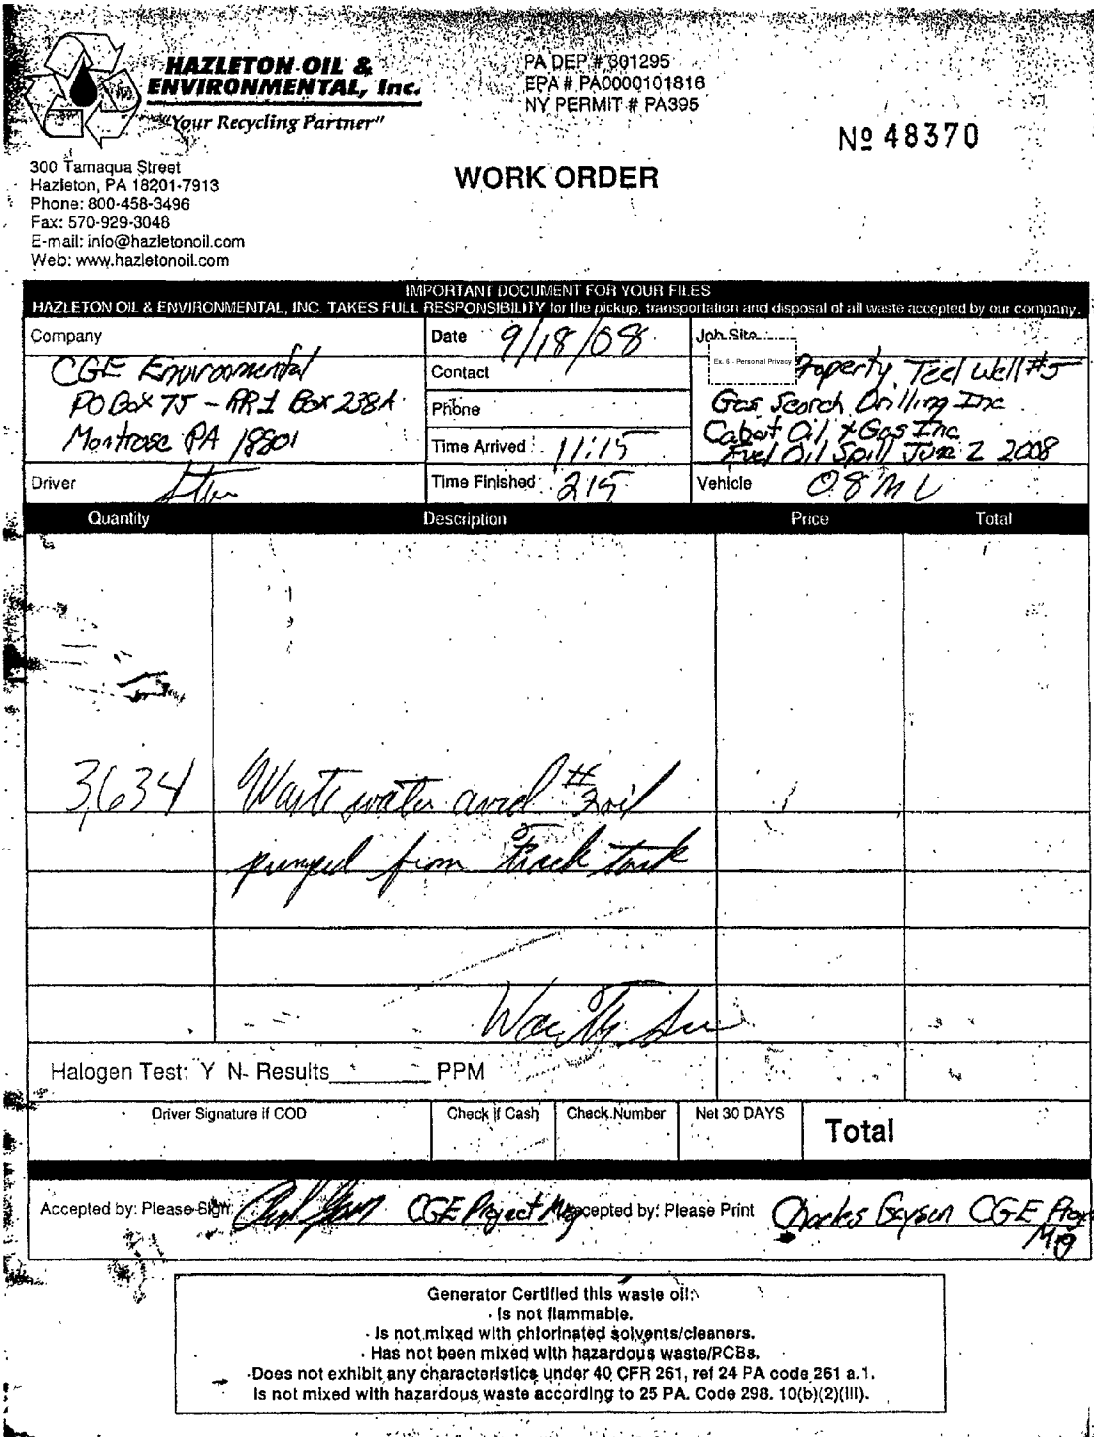 HAZLETON OIL &
ENVIRONMENTAL, Inc.
"Your Recycling Partner"
PA DEP # 301295
EPA # PA0000101816
NY PERMIT # PA395
№ 48370
300 Tamaqua Street
Hazleton, PA 18201-7913
Phone: 800-458-3496
Fax: 570-929-3048
E-mail: info@hazletonoil.com
Web: www.hazletonoil.com
WORK ORDER
IMPORTANT DOCUMENT FOR YOUR FILES
HAZLETON OIL & ENVIRONMENTAL, INC. TAKES FULL RESPONSIBILITY for the pickup, transportation and disposal of all waste accepted by our company.
Company
CGE Environmental
PO Box 75 - RR1 Box 238A
Montrose PA 18801
Date 9/18/08
Contact
Phone
Time Arrived 11:15
Time Finished 215
Job Site
Ex. 6 - Personal Privacy
Property, Teel Well #5
Gas Search Drilling Inc
Cabot Oil & Gas Inc
Fuel Oil Spill June 2 2008
Driver
Vehicle 08ML
Quantity Description Price Total
3,634 Waste water and #2 oil
pumped from Frack tank
Halogen Test: Y N Results PPM
Driver Signature if COD Check if Cash Check Number Net 30 DAYS Total
Accepted by: Please Sign CGE Project Mg Accepted by: Please Print Charles Geysen CGE Proj
Mg
Generator Certified this waste oil:
· Is not flammable.
· Is not mixed with chlorinated solvents/cleaners.
· Has not been mixed with hazardous waste/PCBs.
· Does not exhibit any characteristics under 40 CFR 261, ref 24 PA code 261 a.1.
Is not mixed with hazardous waste according to 25 PA. Code 298. 10(b)(2)(III).